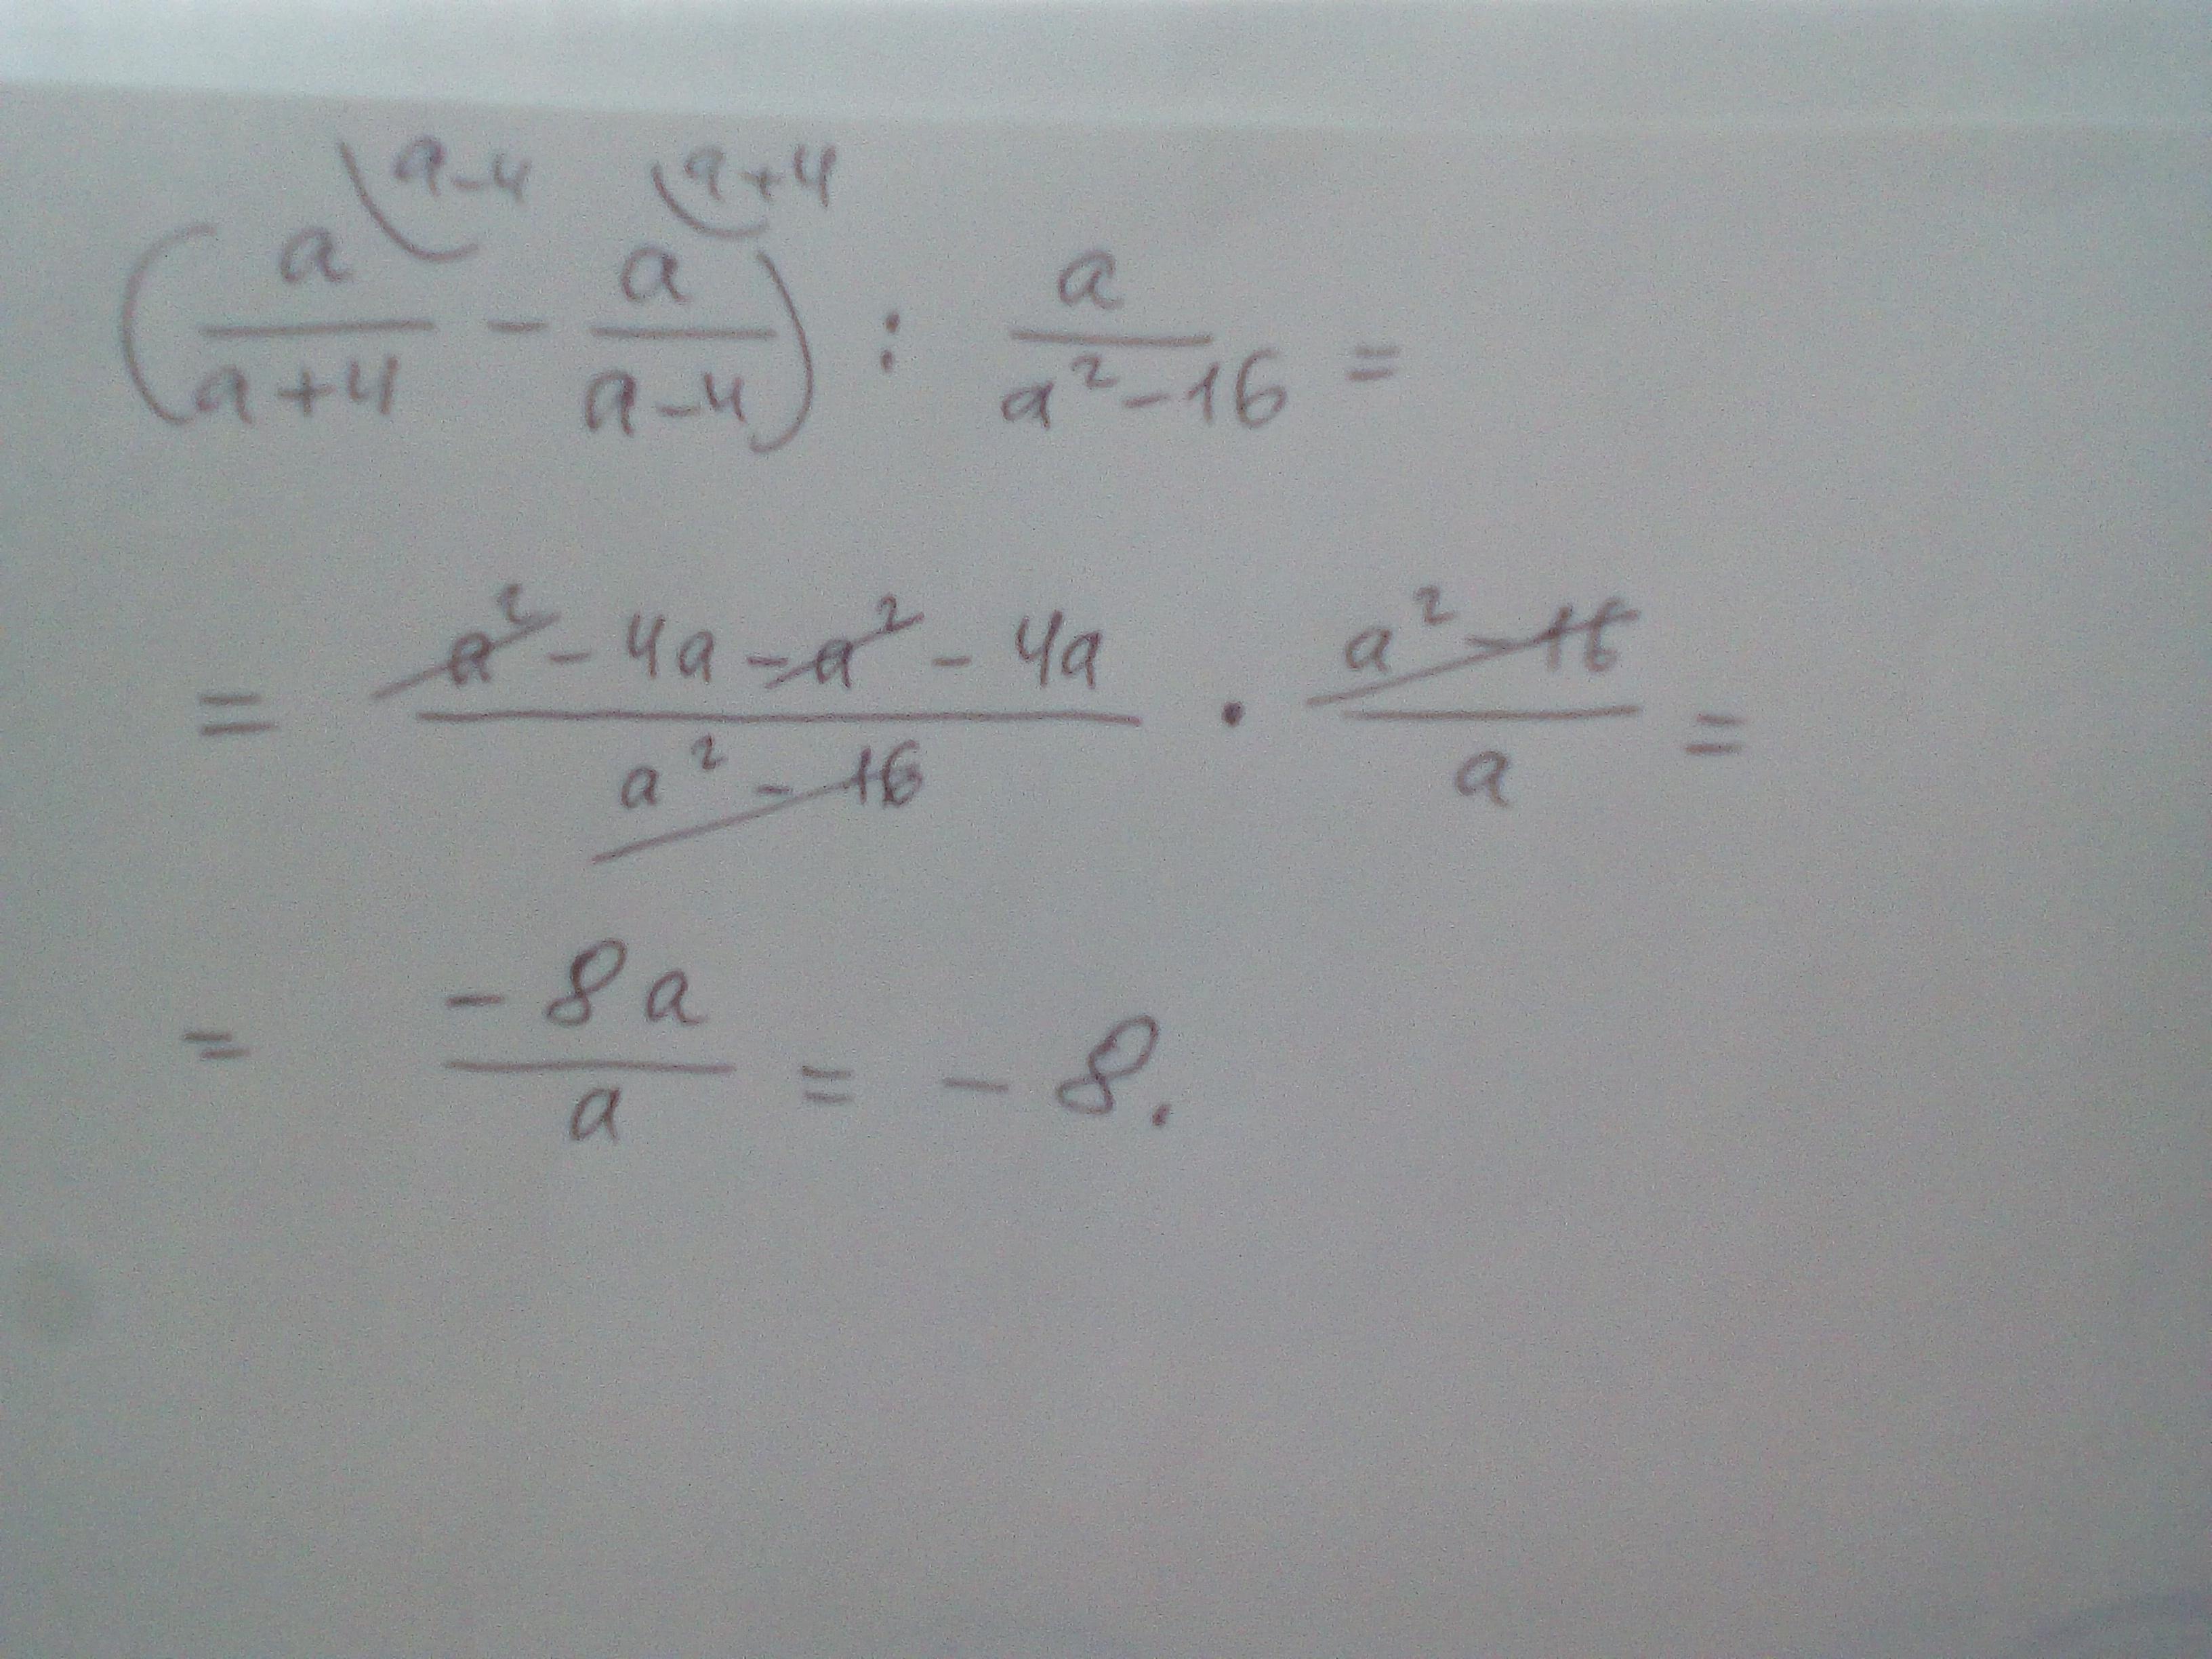 a-4 a+4
(a/(a+4) - a/(a-4)) : a/(a²-16) =
= (a² - 4a - a² - 4a)/(a² - 16) · (a² - 16)/a =
= -8a/a = -8.